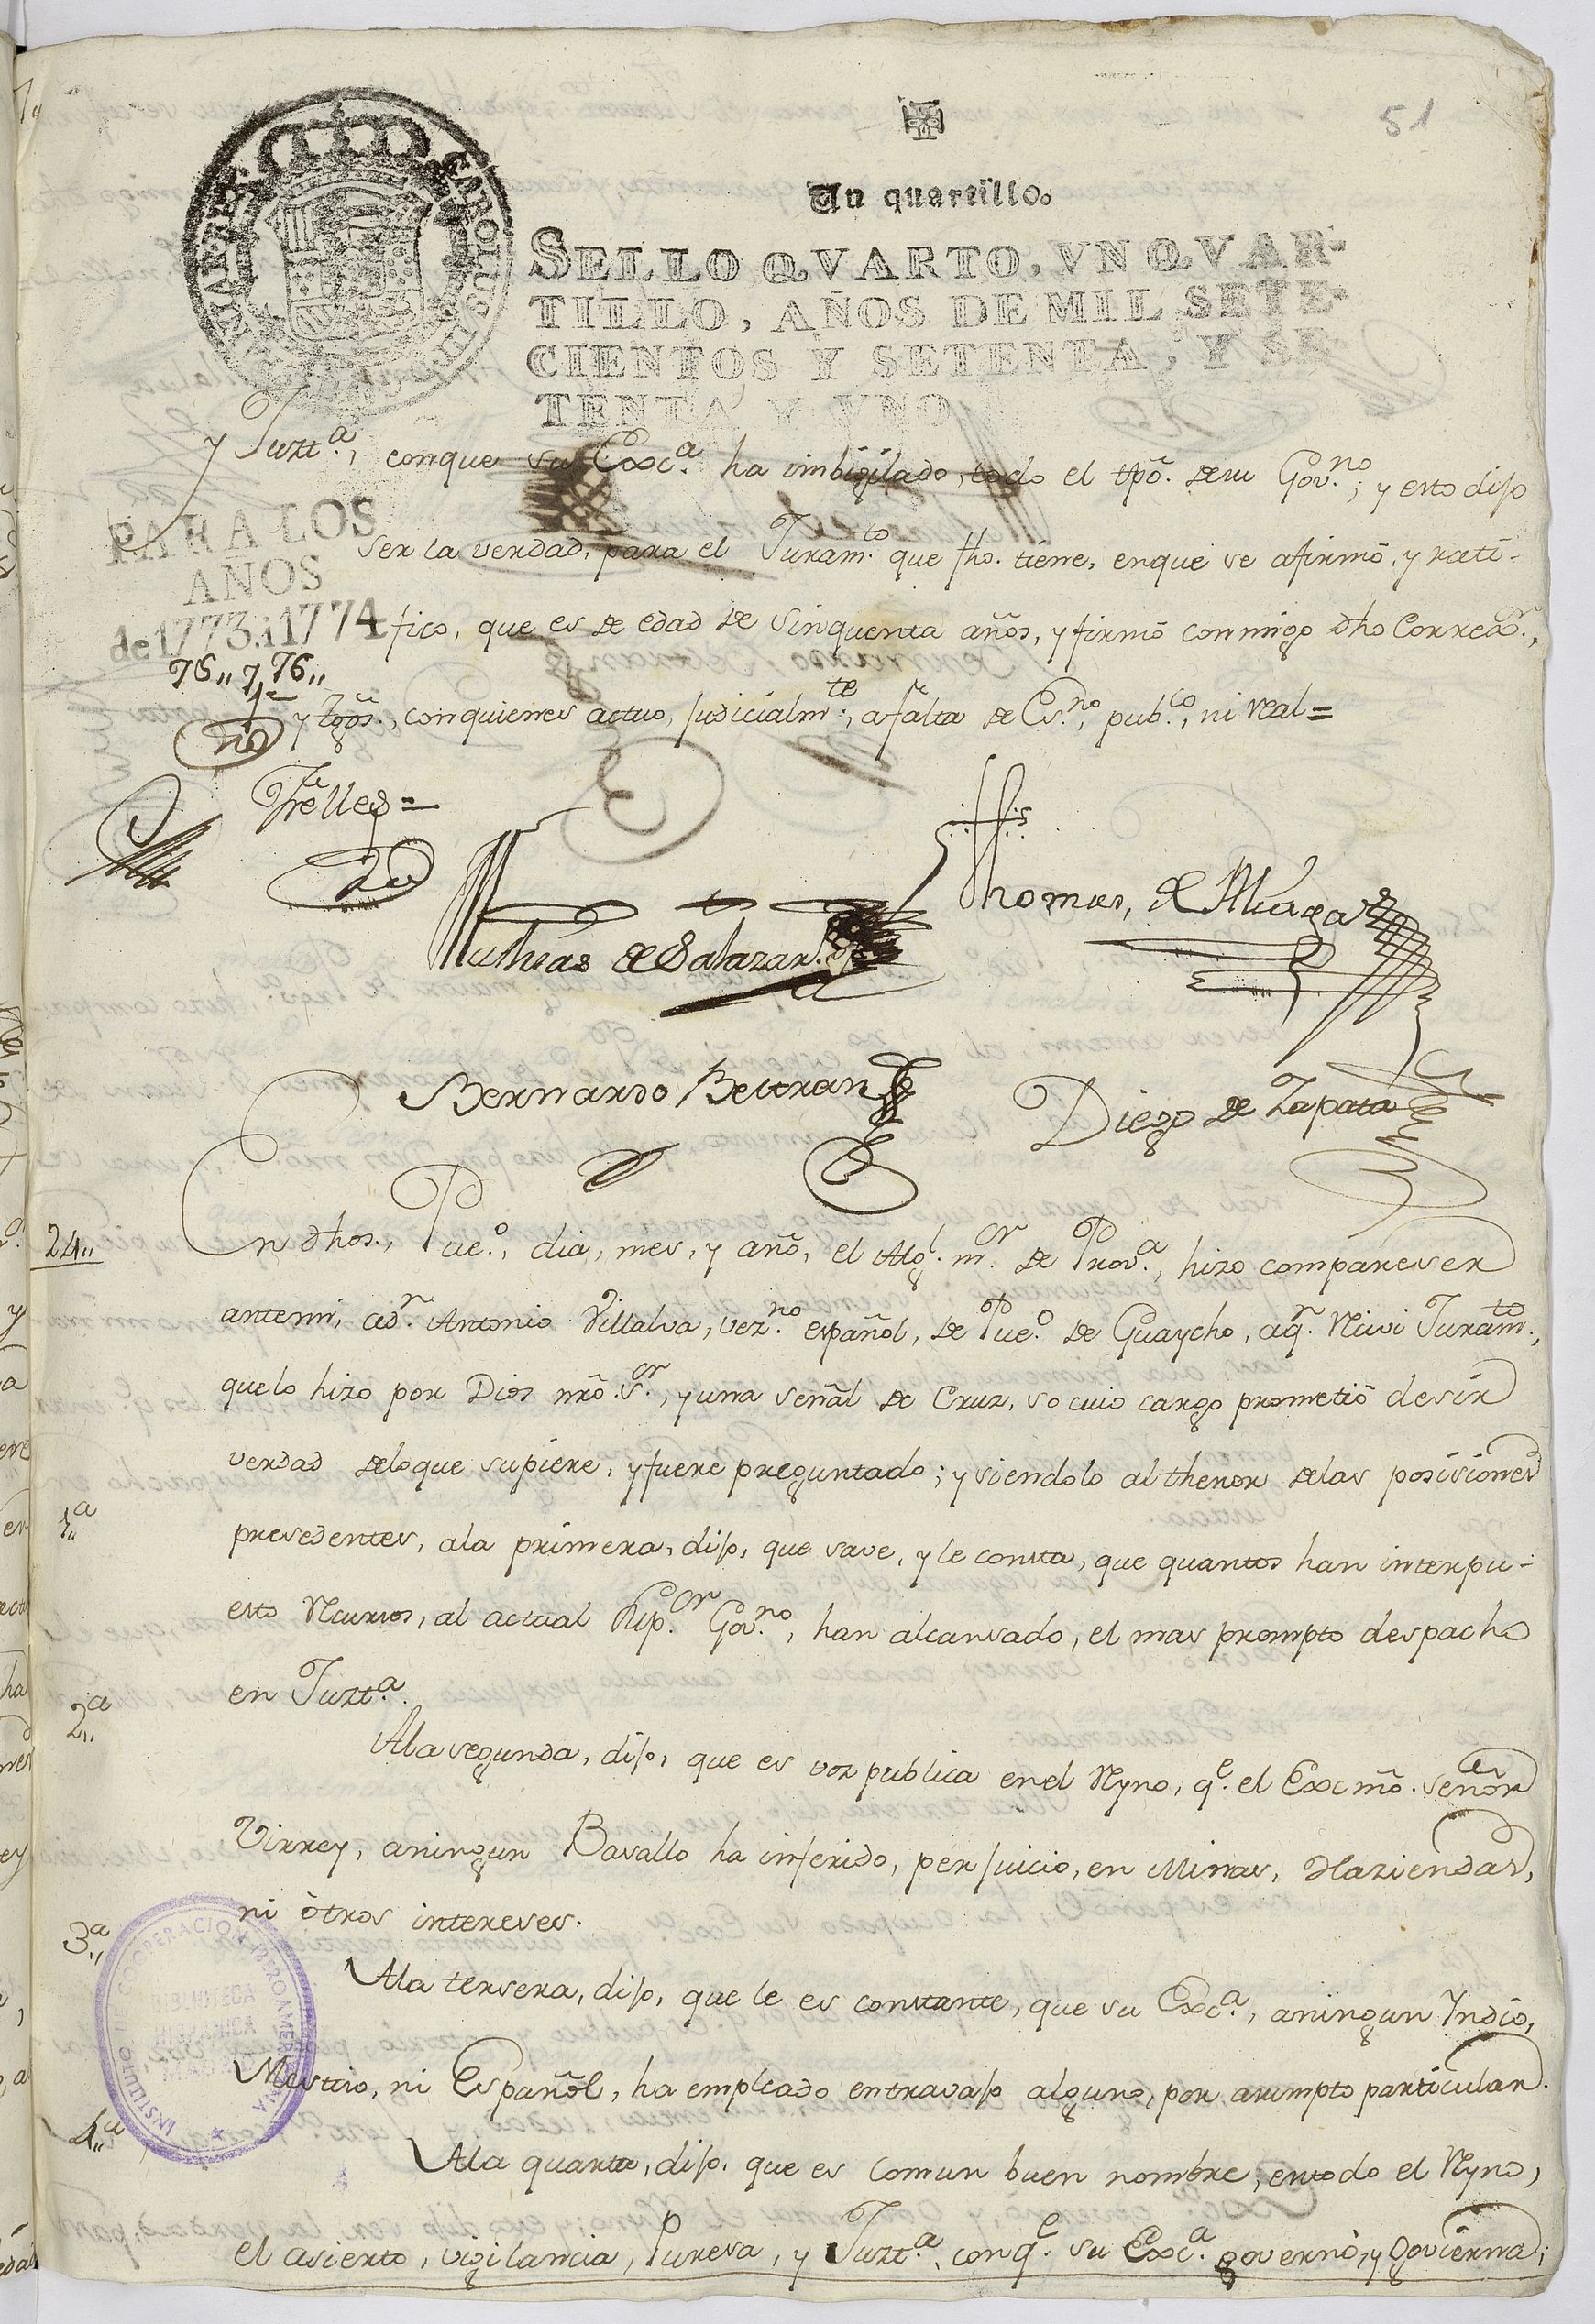 51
Un quartillo.
SELLO QVARTO, VN QVAR-
TILLO, AÑOS DE MIL SETE-
CIENTOS Y SETENTA, Y SE-
TENTA Y VNO
y Juzt.ª, conque su Exc.ª ha imbigilado, todo el tpo. de su Gov.no; y esto dijo
PARA LOS
AÑOS
de 1773. i 1774
75,, y 76,,
ser la verdad, para el Juram.to que fho. tiene, enque se afirmó, y rati-
fico, que es de edad de sinquenta años, y firmó conmigo dho Correx.or,
y tgos., conquienes actuo, judicialm.te, a falta de Es.no, pub.co, ni real =
Thelles =
Mathias de Salazar
Thomas, de Alcaza
Bernardo Beltran
Diego de Zapata
24,,
En dhos., Pue.o, dia, mes, y año, el Alg.l m.or de Prov.ª, hizo compareser
antemi, a d.n Antonio Villalva, vez.no español, de Pue.o de Guaycho, a q.n recivi Juram.to,
que lo hizo por Dios nro. S.or, y una señal de Cruz, so cuio cargo prometió desir
verdad de lo que supiere, y fuere preguntado; y siendolo al thenor de las posisiones
1,,ª
presedentes, a la primera, dijo, que save, y le consta, que quantos han interpu-
esto recursos, al actual Sup.or Gov.no, han alcansado, el mas prompto despacho
en Juzt.ª.
2,,ª
A la segunda, dijo, que es voz publica en el Reyno, q.e el Excmo. señor
Virrey, a ningun Basallo ha inferido, perjuicio, en Minas, Haziendas,
ni otros intereses.
3,,ª
A la tersera, dijo, que le es constante, que su Exc.ª, a ningun Yndio,
Mestiso, ni Español, ha empleado en travajo alguno, por asumpto particular.
4,,ª
A la quarta, dijo, que es comun buen nombre, en todo el Reyno,
el asierto, vigilancia, Puresa, y Juzt.ª, con q.e su Exc.ª governó, y govierna;
INSTITUTO DE COOPERACION IBEROAMERICANA
BIBLIOTECA
HISPANICA